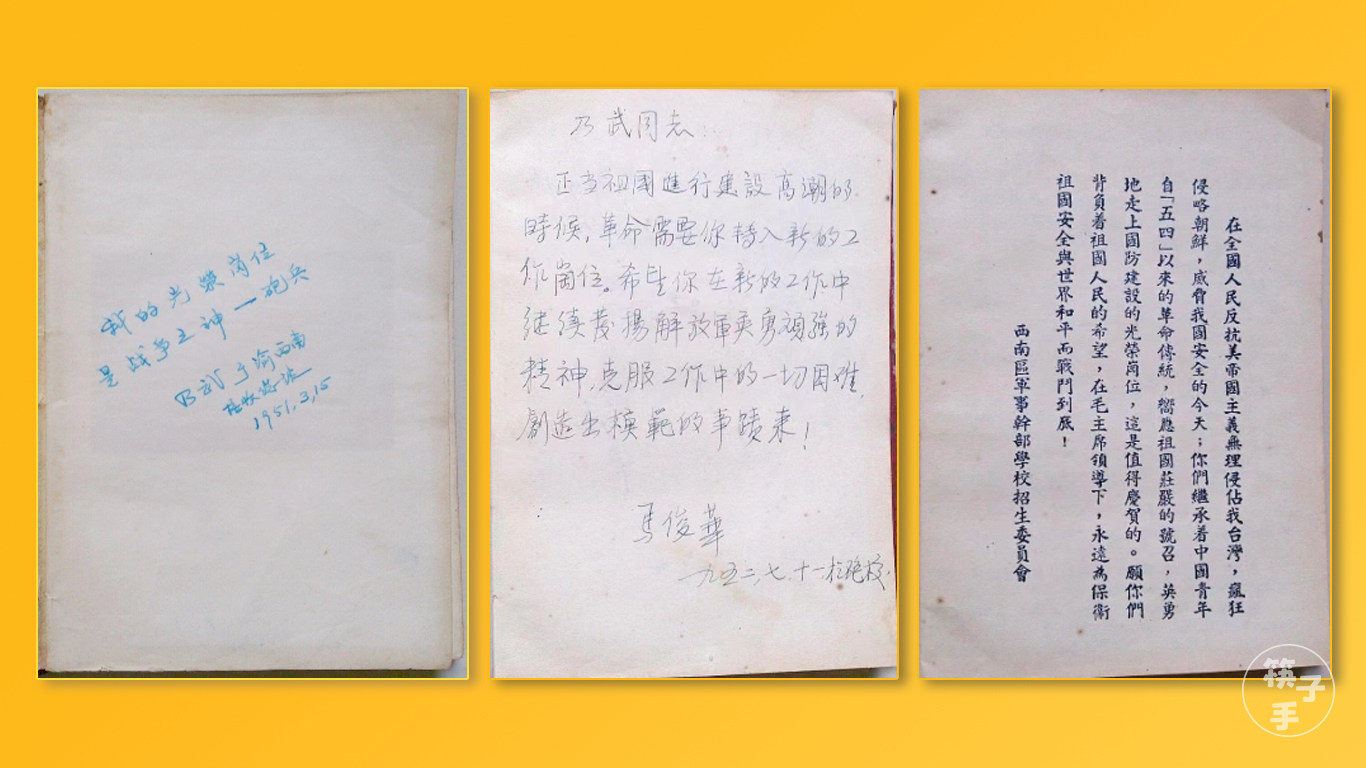 我的光榮崗位
是战争之神——砲兵
乃武于渝西南
1951.3.15
乃武同志：
正当祖國進行建設高潮的
時候，革命需要你轉入新的工
作崗位。希望你在新的工作中
继续發揚解放軍英勇頑強的
精神，克服工作中的一切困难，
創造出模範的事蹟来！
馬俊華
一九五二，七，十一於砲校．
在全國人民反抗美帝國主義無理侵佔我台灣，瘋狂
侵略朝鮮，威脅我國安全的今天；你們繼承着中國青年
自「五四」以來的革命傳統，嚮應祖國莊嚴的號召，英勇
地走上國防建設的光榮崗位，這是值得慶賀的。願你們
背負着祖國人民的希望，在毛主席領導下，永遠為保衛
祖國安全與世界和平而戰鬥到底！
西南區軍事幹部學校招生委員會
筷子手